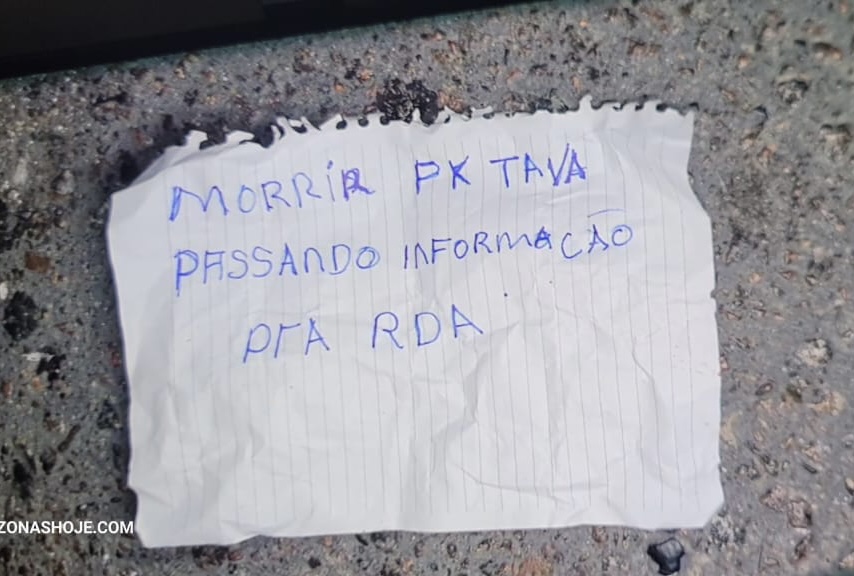 MORRIR PK TAVA
PASSANDO INFORMAÇÃO
PRA RDA
ZONASHOJE.COM